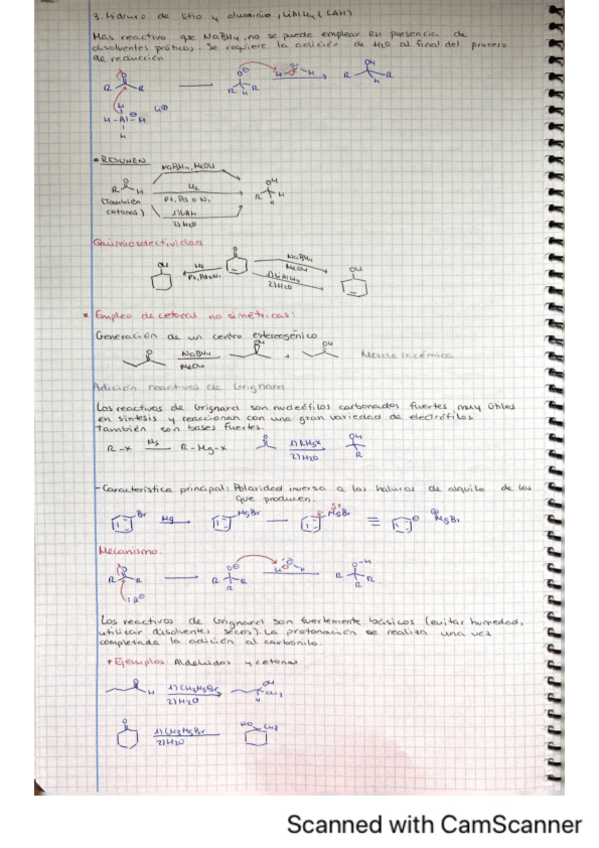 3. Hidruro de litio y aluminio, LiAlH4 (LAH)
Más reactivo que NaBH4, no se puede emplear en presencia de
disolventes próticos. Se requiere la adición de H2O al final del proceso
de reducción
• RESUMEN
NaBH4, MeOH
(También
cetonas)
H2
Pt, Pd o Ni
1) LAH
2) H2O
Quimioselectividad
H2
NaBH4
MeOH
1) LiAlH4
2) H2O
* Empleo de cetonas no simétricas:
Generación de un centro estereogénico
NaBH4
MeOH
Mezcla racémica
Adición reactivos de Grignard
Los reactivos de Grignard son nucleófilos carbonados fuertes, muy útiles
en síntesis y reaccionan con una gran variedad de electrófilos
También son bases fuertes.
R-X Mg R-Mg-X
1) RMgX
2) H2O
- Característica principal: Polaridad inversa a los haluros de alquilo de los
que producen.
Br Mg MgBr MgBr MgBr
Mecanismo
Los reactivos de Grignard son fuertemente básicos (evitar humedad,
utilizar disolventes secos). La protonación se realiza una vez
completada la adición al carbonilo.
* Ejemplos: Aldehidos y cetonas
1) CH3MgBr
2) H2O
1) CH3MgBr
2) H2O
HO CH3
Scanned with CamScanner